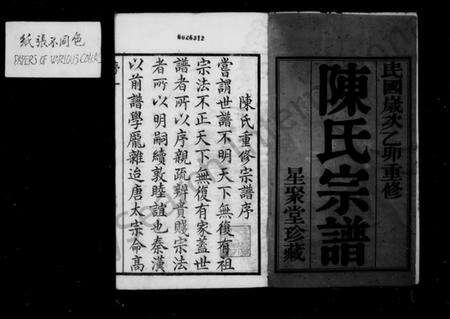 紙張不同色
PAPERS OF VARIOUS COLORS
民國歲次乙卯重修
陳氏宗譜
星聚堂珍藏
陳氏重修宗譜序
嘗謂世譜不明天下無復有祖
宗法不正天下無復有家蓋世
譜者所以序親疏辨貴賤宗法
者所以明嗣續敦睦誼也秦漢
以前譜學龐雜迨唐太宗命高